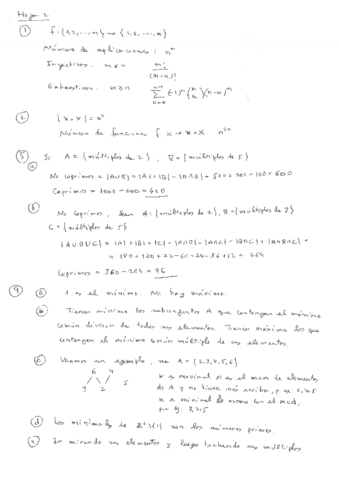 Hoja 2
① f: {1,2,...,m} → {1,2,...,n}
Número de aplicaciones: n^m
Inyectivas. m≤n
Exhaustivas. m≥n
② |X×X| = n²
Número de funciones f X → X×X n^2n
⑤ Si A = {múltiplos de 2}, B = {múltiplos de 5}
ⓐ
No coprimos = |A∪B| = |A|+|B|-|A∩B| = 500+200-100 = 600
Coprimos = 1000-600 = 400
ⓑ No coprimos, Sean A={múltiplos de 2}, B={múltiplos de 3}
C={múltiplos de 5}
|A∪B∪C| = |A|+|B|+|C|-|A∩B|-|A∩C|-|B∩C|+|A∩B∩C| =
= 180+120+72-60-36-24+12 = 264
Coprimos = 360-264 = 96
⑨ ⓐ 1 es el mínimo. No hay máximo.
ⓑ Tienen mínimo los subconjuntos A que contengan el máximo
común divisor de todos sus elementos. Tienen máximo los que
contengan el mínimo común múltiplo de sus elementos.
ⓒ Veamos un ejemplo, sea A = {2,3,4,5,6}
6 4
3 2 5
ⓓ Los minimales de Z⁺\{1} son los números primos.
ⓔ Ir mirando sus elementos y luego tachando sus múltiplos